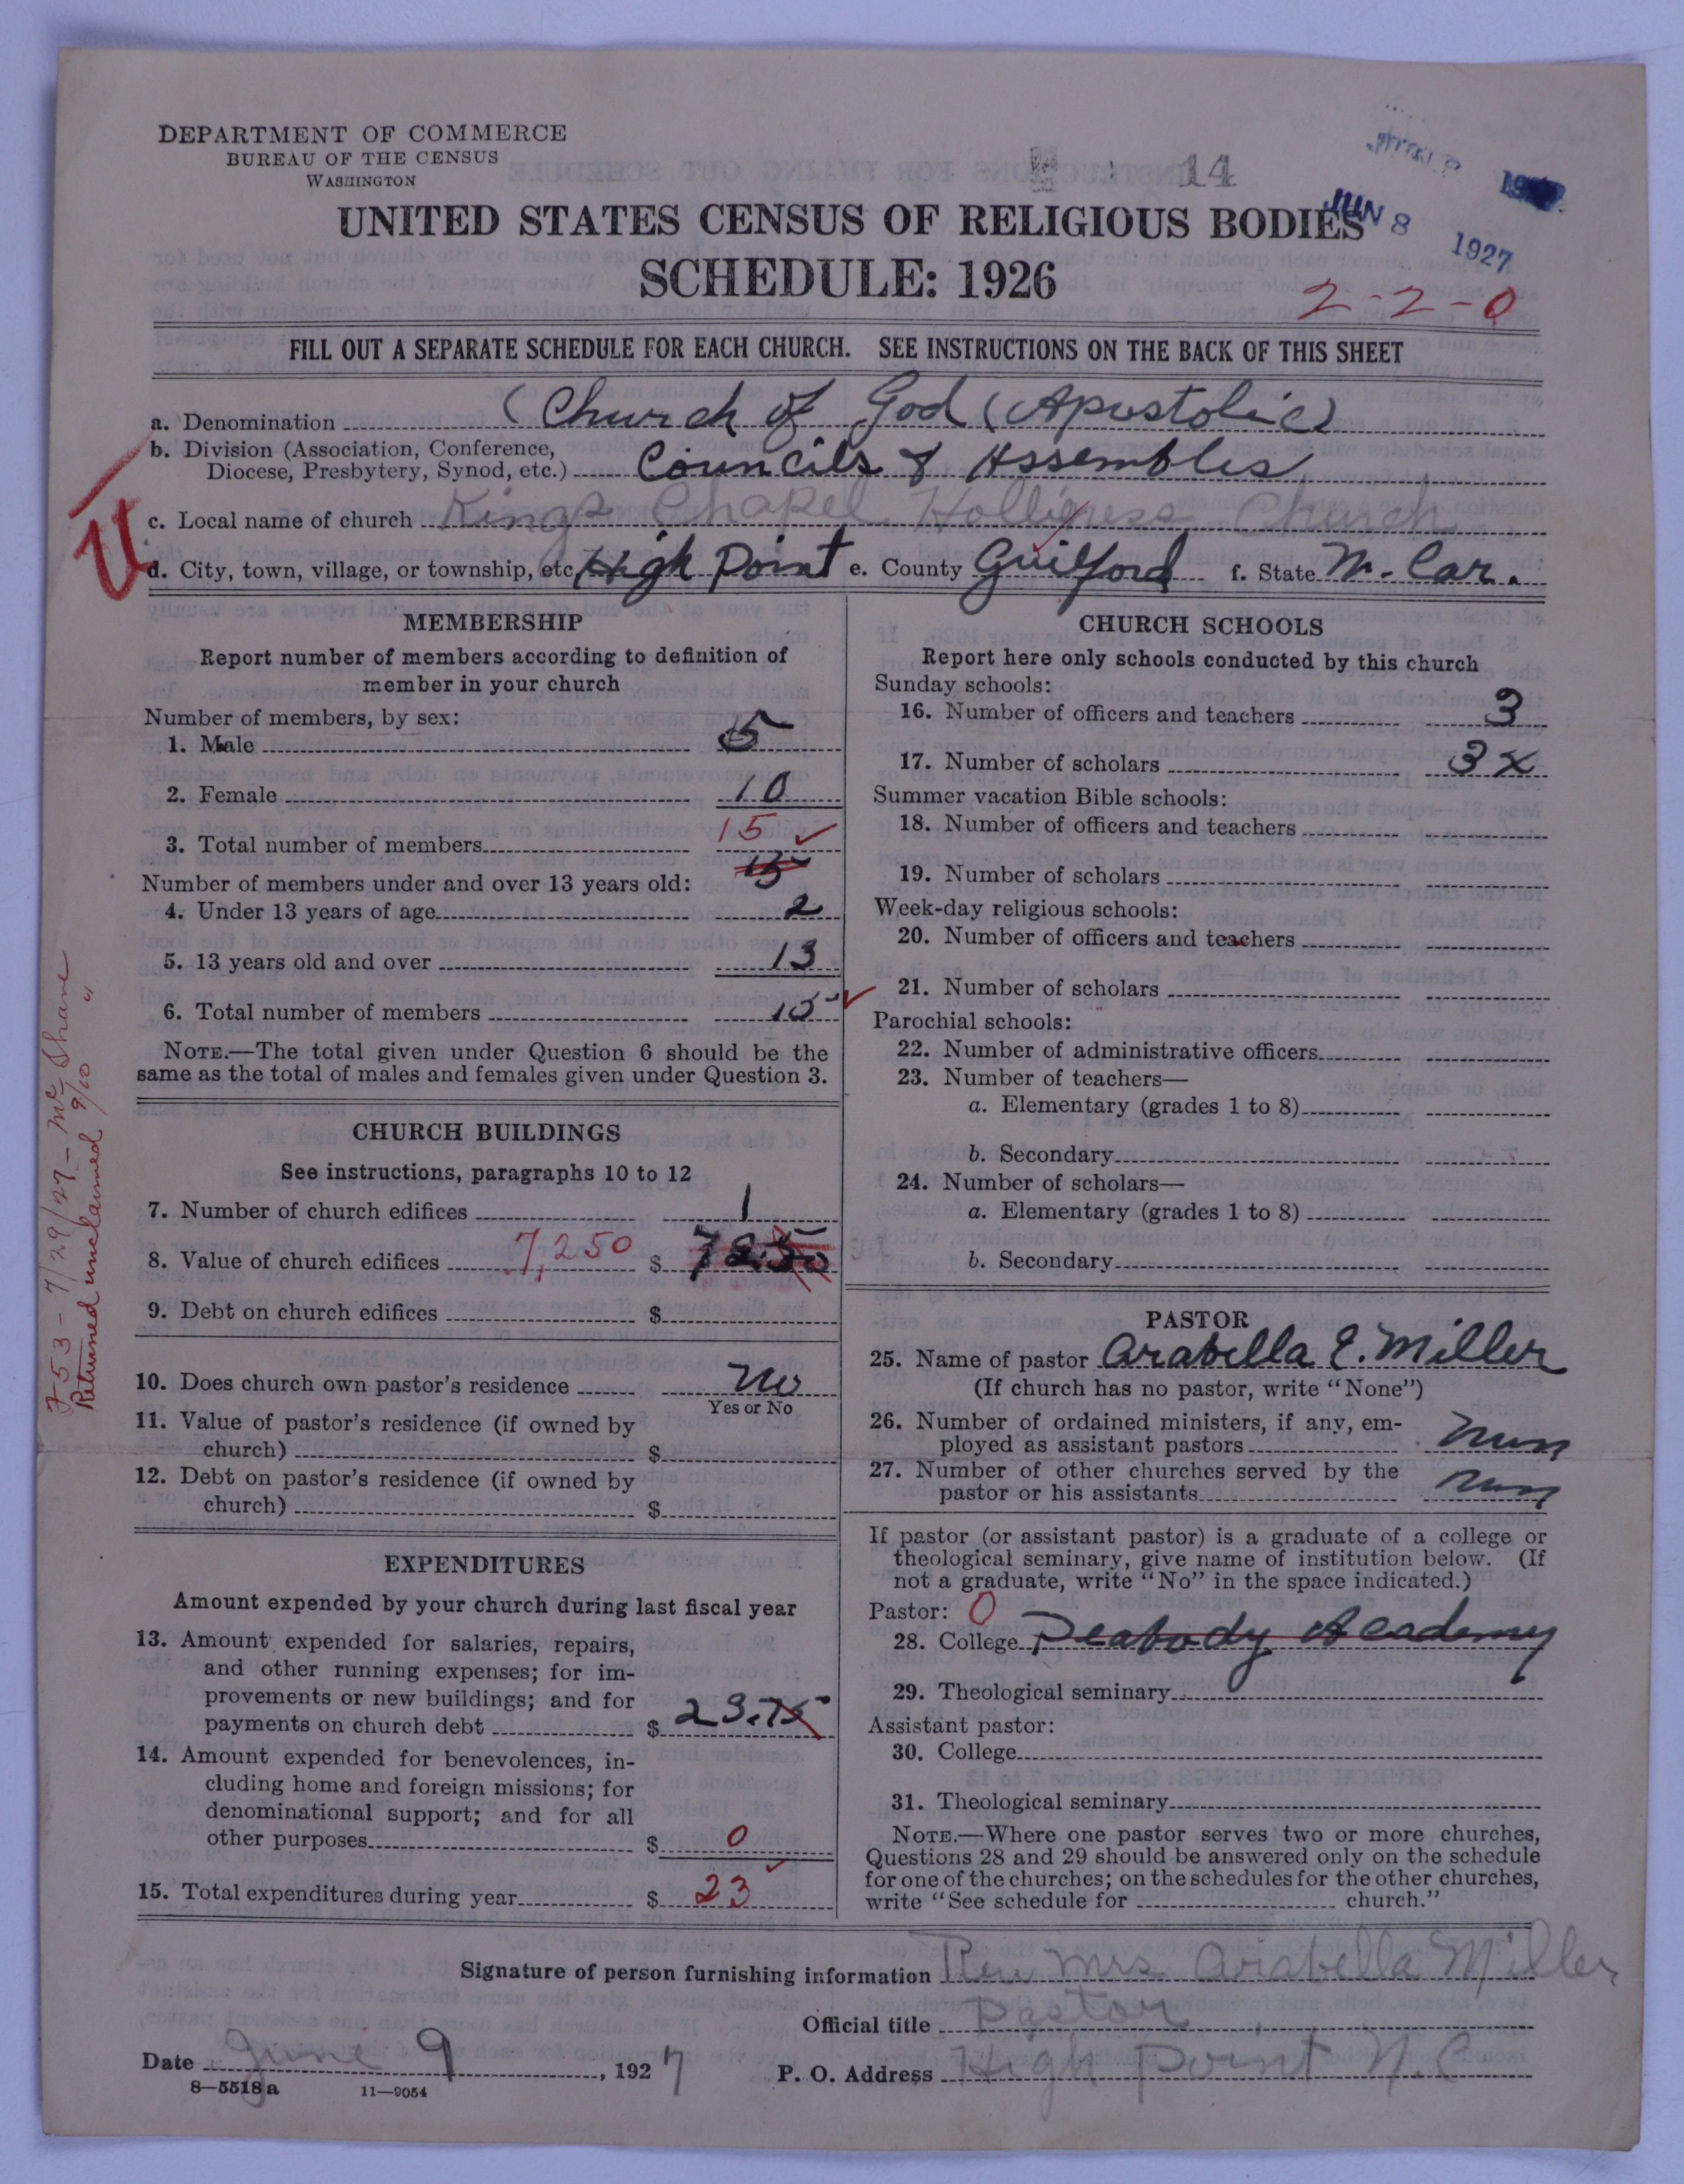 DEPARTMENT OF COMMERCE
BUREAU OF THE CENSUS
WASHINGTON
14
JUN 8 1927
UNITED STATES CENSUS OF RELIGIOUS BODIES
SCHEDULE: 1926
2-2-0
FILL OUT A SEPARATE SCHEDULE FOR EACH CHURCH. SEE INSTRUCTIONS ON THE BACK OF THIS SHEET
a. Denomination (Church of God (Apostolic)
b. Division (Association, Conference,
Diocese, Presbytery, Synod, etc.) Councils & Assembles
c. Local name of church Kings Chapel Holliness Church
d. City, town, village, or township, etc. High Point e. County Guilford f. State N. Car.
MEMBERSHIP
Report number of members according to definition of
member in your church
Number of members, by sex:
1. Male 5
2. Female 10
3. Total number of members 15
15
Number of members under and over 13 years old:
4. Under 13 years of age 2
5. 13 years old and over 13
6. Total number of members 15
NOTE.—The total given under Question 6 should be the
same as the total of males and females given under Question 3.
CHURCH BUILDINGS
See instructions, paragraphs 10 to 12
7. Number of church edifices 1
8. Value of church edifices 7,250 $ 72.50
9. Debt on church edifices $
10. Does church own pastor's residence No
Yes or No
11. Value of pastor's residence (if owned by
church) $
12. Debt on pastor's residence (if owned by
church) $
EXPENDITURES
Amount expended by your church during last fiscal year
13. Amount expended for salaries, repairs,
and other running expenses; for im-
provements or new buildings; and for
payments on church debt $ 23.75
14. Amount expended for benevolences, in-
cluding home and foreign missions; for
denominational support; and for all
other purposes $ 0
15. Total expenditures during year $ 23
CHURCH SCHOOLS
Report here only schools conducted by this church
Sunday schools:
16. Number of officers and teachers 3
17. Number of scholars 3 x
Summer vacation Bible schools:
18. Number of officers and teachers
19. Number of scholars
Week-day religious schools:
20. Number of officers and teachers
21. Number of scholars
Parochial schools:
22. Number of administrative officers
23. Number of teachers—
a. Elementary (grades 1 to 8)
b. Secondary
24. Number of scholars—
a. Elementary (grades 1 to 8)
b. Secondary
PASTOR
25. Name of pastor Arabella E. Miller
(If church has no pastor, write "None")
26. Number of ordained ministers, if any, em-
ployed as assistant pastors Nun
27. Number of other churches served by the
pastor or his assistants Nun
If pastor (or assistant pastor) is a graduate of a college or
theological seminary, give name of institution below. (If
not a graduate, write "No" in the space indicated.)
Pastor: 0
28. College Peabody Academy
29. Theological seminary
Assistant pastor:
30. College
31. Theological seminary
NOTE.—Where one pastor serves two or more churches,
Questions 28 and 29 should be answered only on the schedule
for one of the churches; on the schedules for the other churches,
write "See schedule for church."
Signature of person furnishing information Rev Mrs Arabella Miller
Official title Pastor
Date June 9, 1927 P. O. Address High Point N.C
8—5518 a 11—9054
F 53 - 7/29/27 - McShane
Returned unclaimed 9/10 "